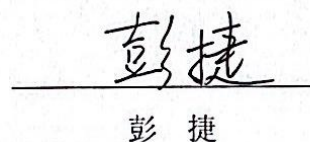 彭捷
彭 捷